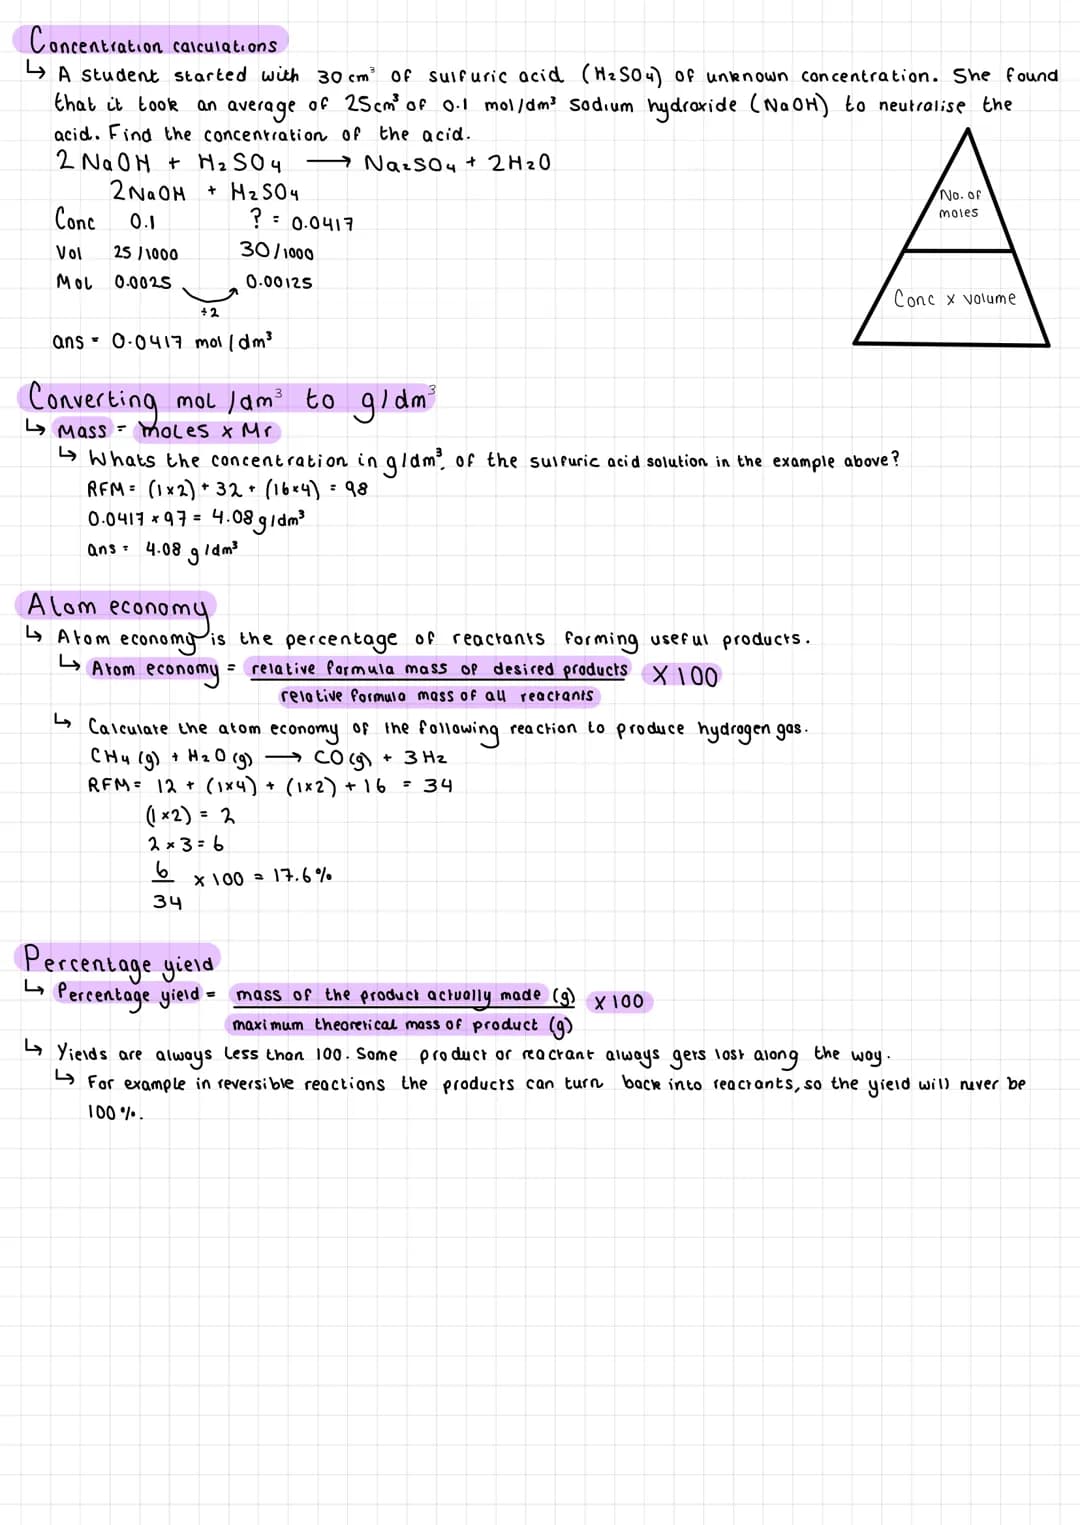 Concentration calculations
↳ A student started with 30 cm³ of sulfuric acid (H₂SO₄) of unknown concentration. She found
that it took an average of 25cm³ of 0.1 mol/dm³ sodium hydroxide (NaOH) to neutralise the
acid. Find the concentration of the acid.
2 NaOH + H₂SO₄ → Na₂SO₄ + 2H₂O
2NaOH + H₂SO₄
Conc 0.1 ? = 0.0417
Vol 25/1000 30/1000
Mol 0.0025 0.00125
÷2
ans = 0.0417 mol/dm³
No. of
moles
Conc x volume
Converting mol/dm³ to g/dm³
↳ Mass = moles x Mr
↳ Whats the concentration in g/dm³, of the sulfuric acid solution in the example above?
RFM = (1×2) + 32 + (16×4) = 98
0.0417 × 97 = 4.08 g/dm³
ans = 4.08 g/dm³
Atom economy
↳ Atom economy is the percentage of reactants forming useful products.
↳ Atom economy = relative formula mass of desired products X 100
relative formula mass of all reactants
↳ Calculate the atom economy of the following reaction to produce hydrogen gas.
CH₄ (g) + H₂O (g) → CO (g) + 3H₂
RFM = 12 + (1×4) + (1×2) + 16 = 34
(1×2) = 2
2 × 3 = 6
6 x 100 = 17.6%
34
Percentage yield
↳ Percentage yield = mass of the product actually made (g) x 100
maximum theoretical mass of product (g)
↳ Yields are always less than 100. Some product or reactant always gets lost along the way.
↳ For example in reversible reactions the products can turn back into reactants, so the yield will never be
100%.